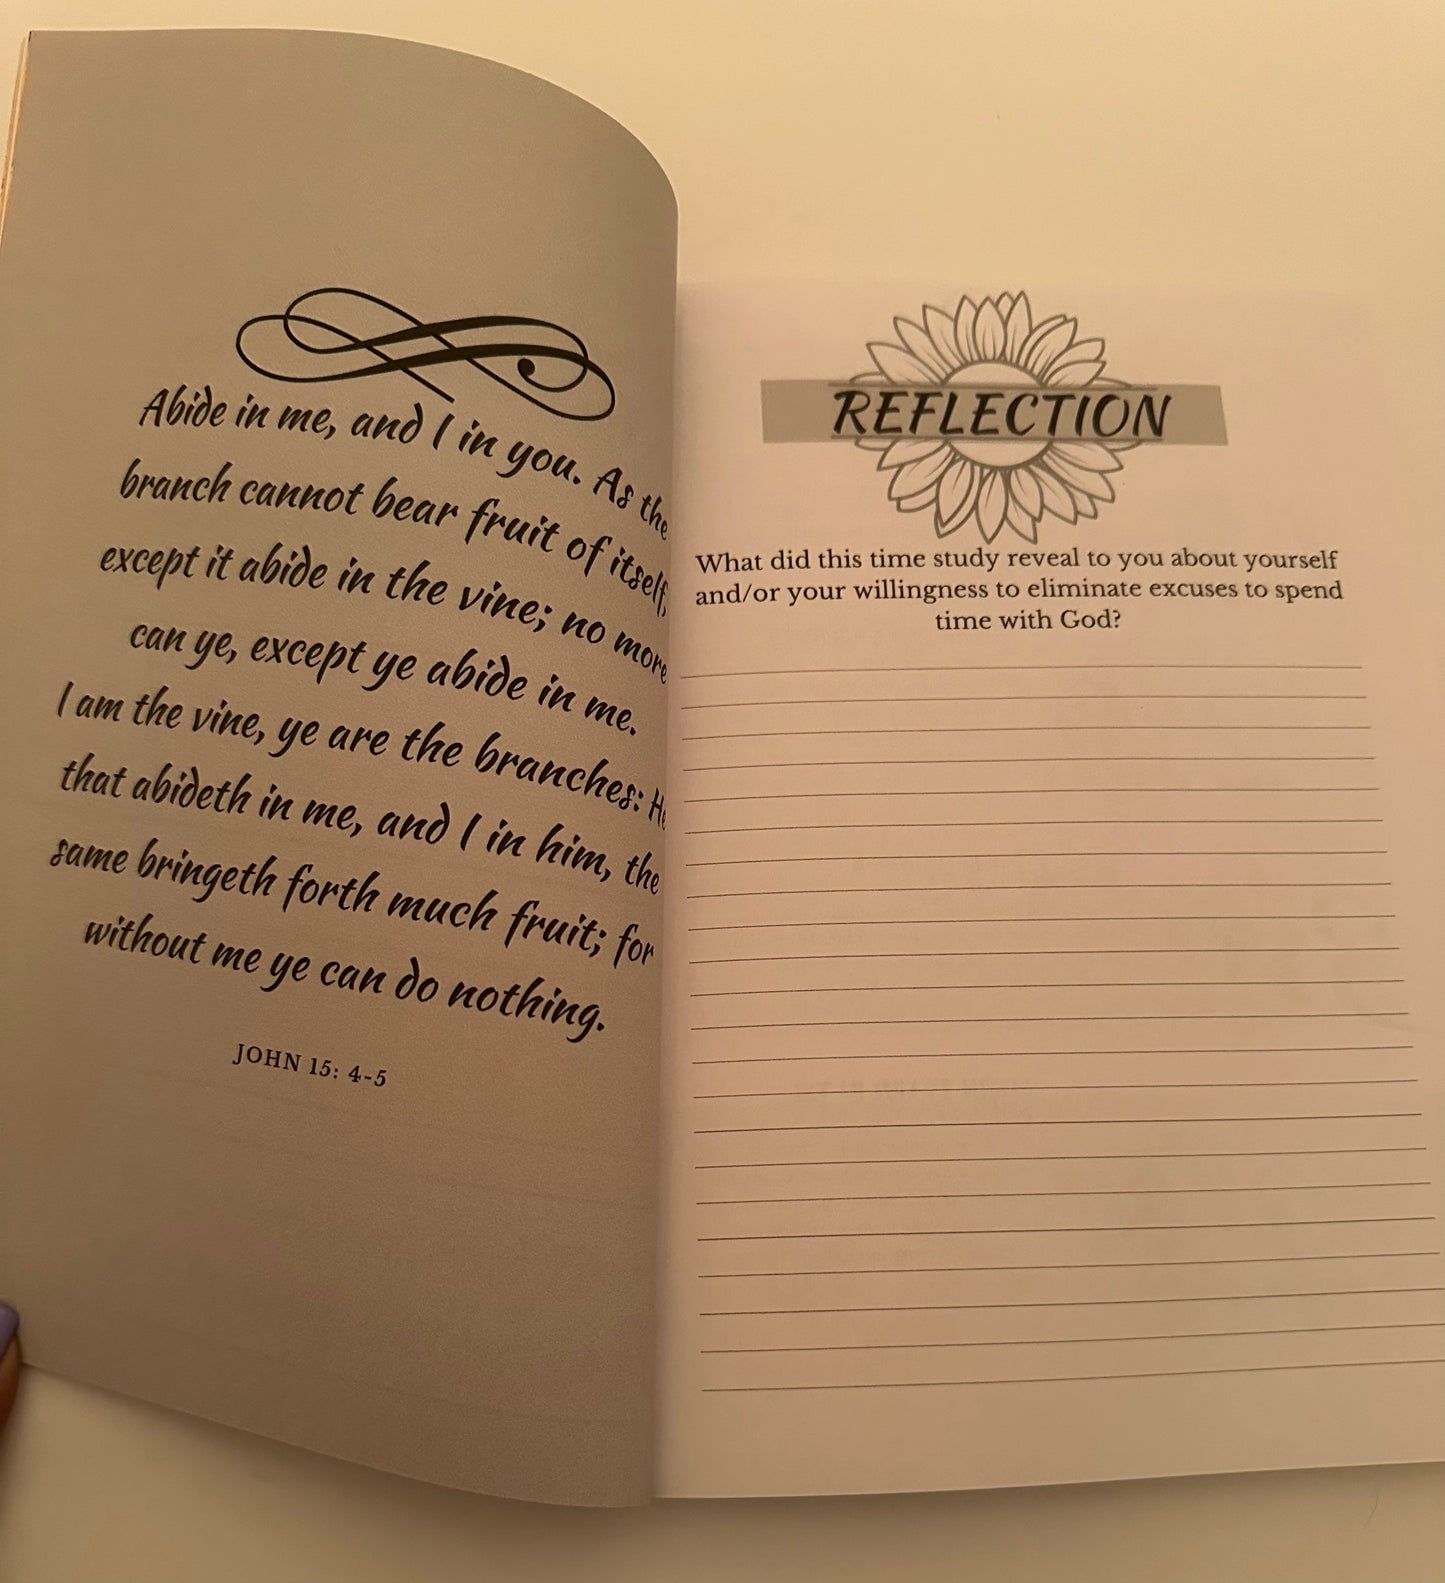 Abide in me, and I in you. As the
branch cannot bear fruit of itself,
except it abide in the vine; no more
can ye, except ye abide in me.
I am the vine, ye are the branches: He
that abideth in me, and I in him, the
same bringeth forth much fruit; for
without me ye can do nothing.
JOHN 15: 4-5
REFLECTION
What did this time study reveal to you about yourself
and/or your willingness to eliminate excuses to spend
time with God?